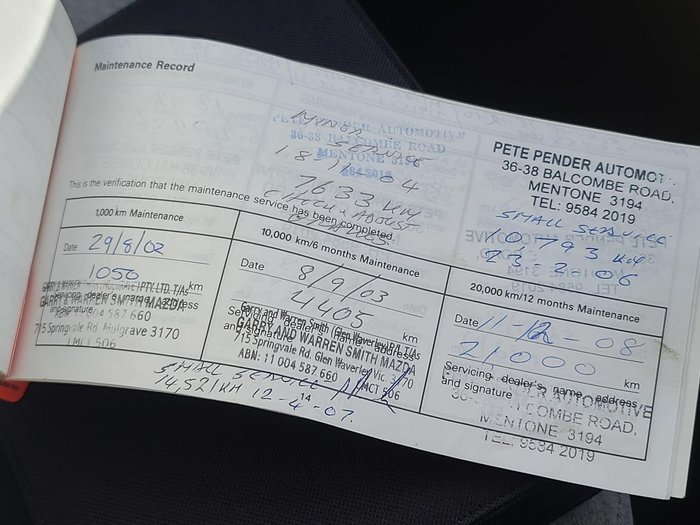 Maintenance Record
MINOR
PETE PENDER AUTOMOTIVE
36-38 BALCOMBE ROAD
SERVICE
MENTONE 3194
18 11 04
9584 2019
7633 km
CHECK & ADJUST
BRAKES
PETE PENDER AUTOMOT
36-38 BALCOMBE ROAD,
MENTONE 3194
TEL: 9584 2019
SMALL SERVICE
10793 km
23-3-06
This is the verification that the maintenance service has been completed.
1,000 km Maintenance
Date 29/8/02
1050 km
Servicing dealer's name, address
and signature
GARRY & WARREN SMITH MAZDA
ABN: 11 004 587 660
715 Springvale Rd. Mulgrave 3170
LMCT 506
10,000 km/6 months Maintenance
Date 8/9/03
4405 km
Servicing dealer's name, address
and signature
Garry and Warren Smith (Glen Waverley) P/L T/As
GARRY AND WARREN SMITH MAZDA
715 Springvale Rd. Glen Waverley Vic. 3170
ABN: 11 004 587 660 LMCT 506
20,000 km/12 months Maintenance
Date 11-12-08
21000 km
Servicing dealer's name, address
and signature
PENDER AUTOMOTIVE
36-38 BALCOMBE ROAD,
MENTONE 3194
TEL: 9584 2019
SMALL SERVICE
14,521 KM 12-4-07.
14